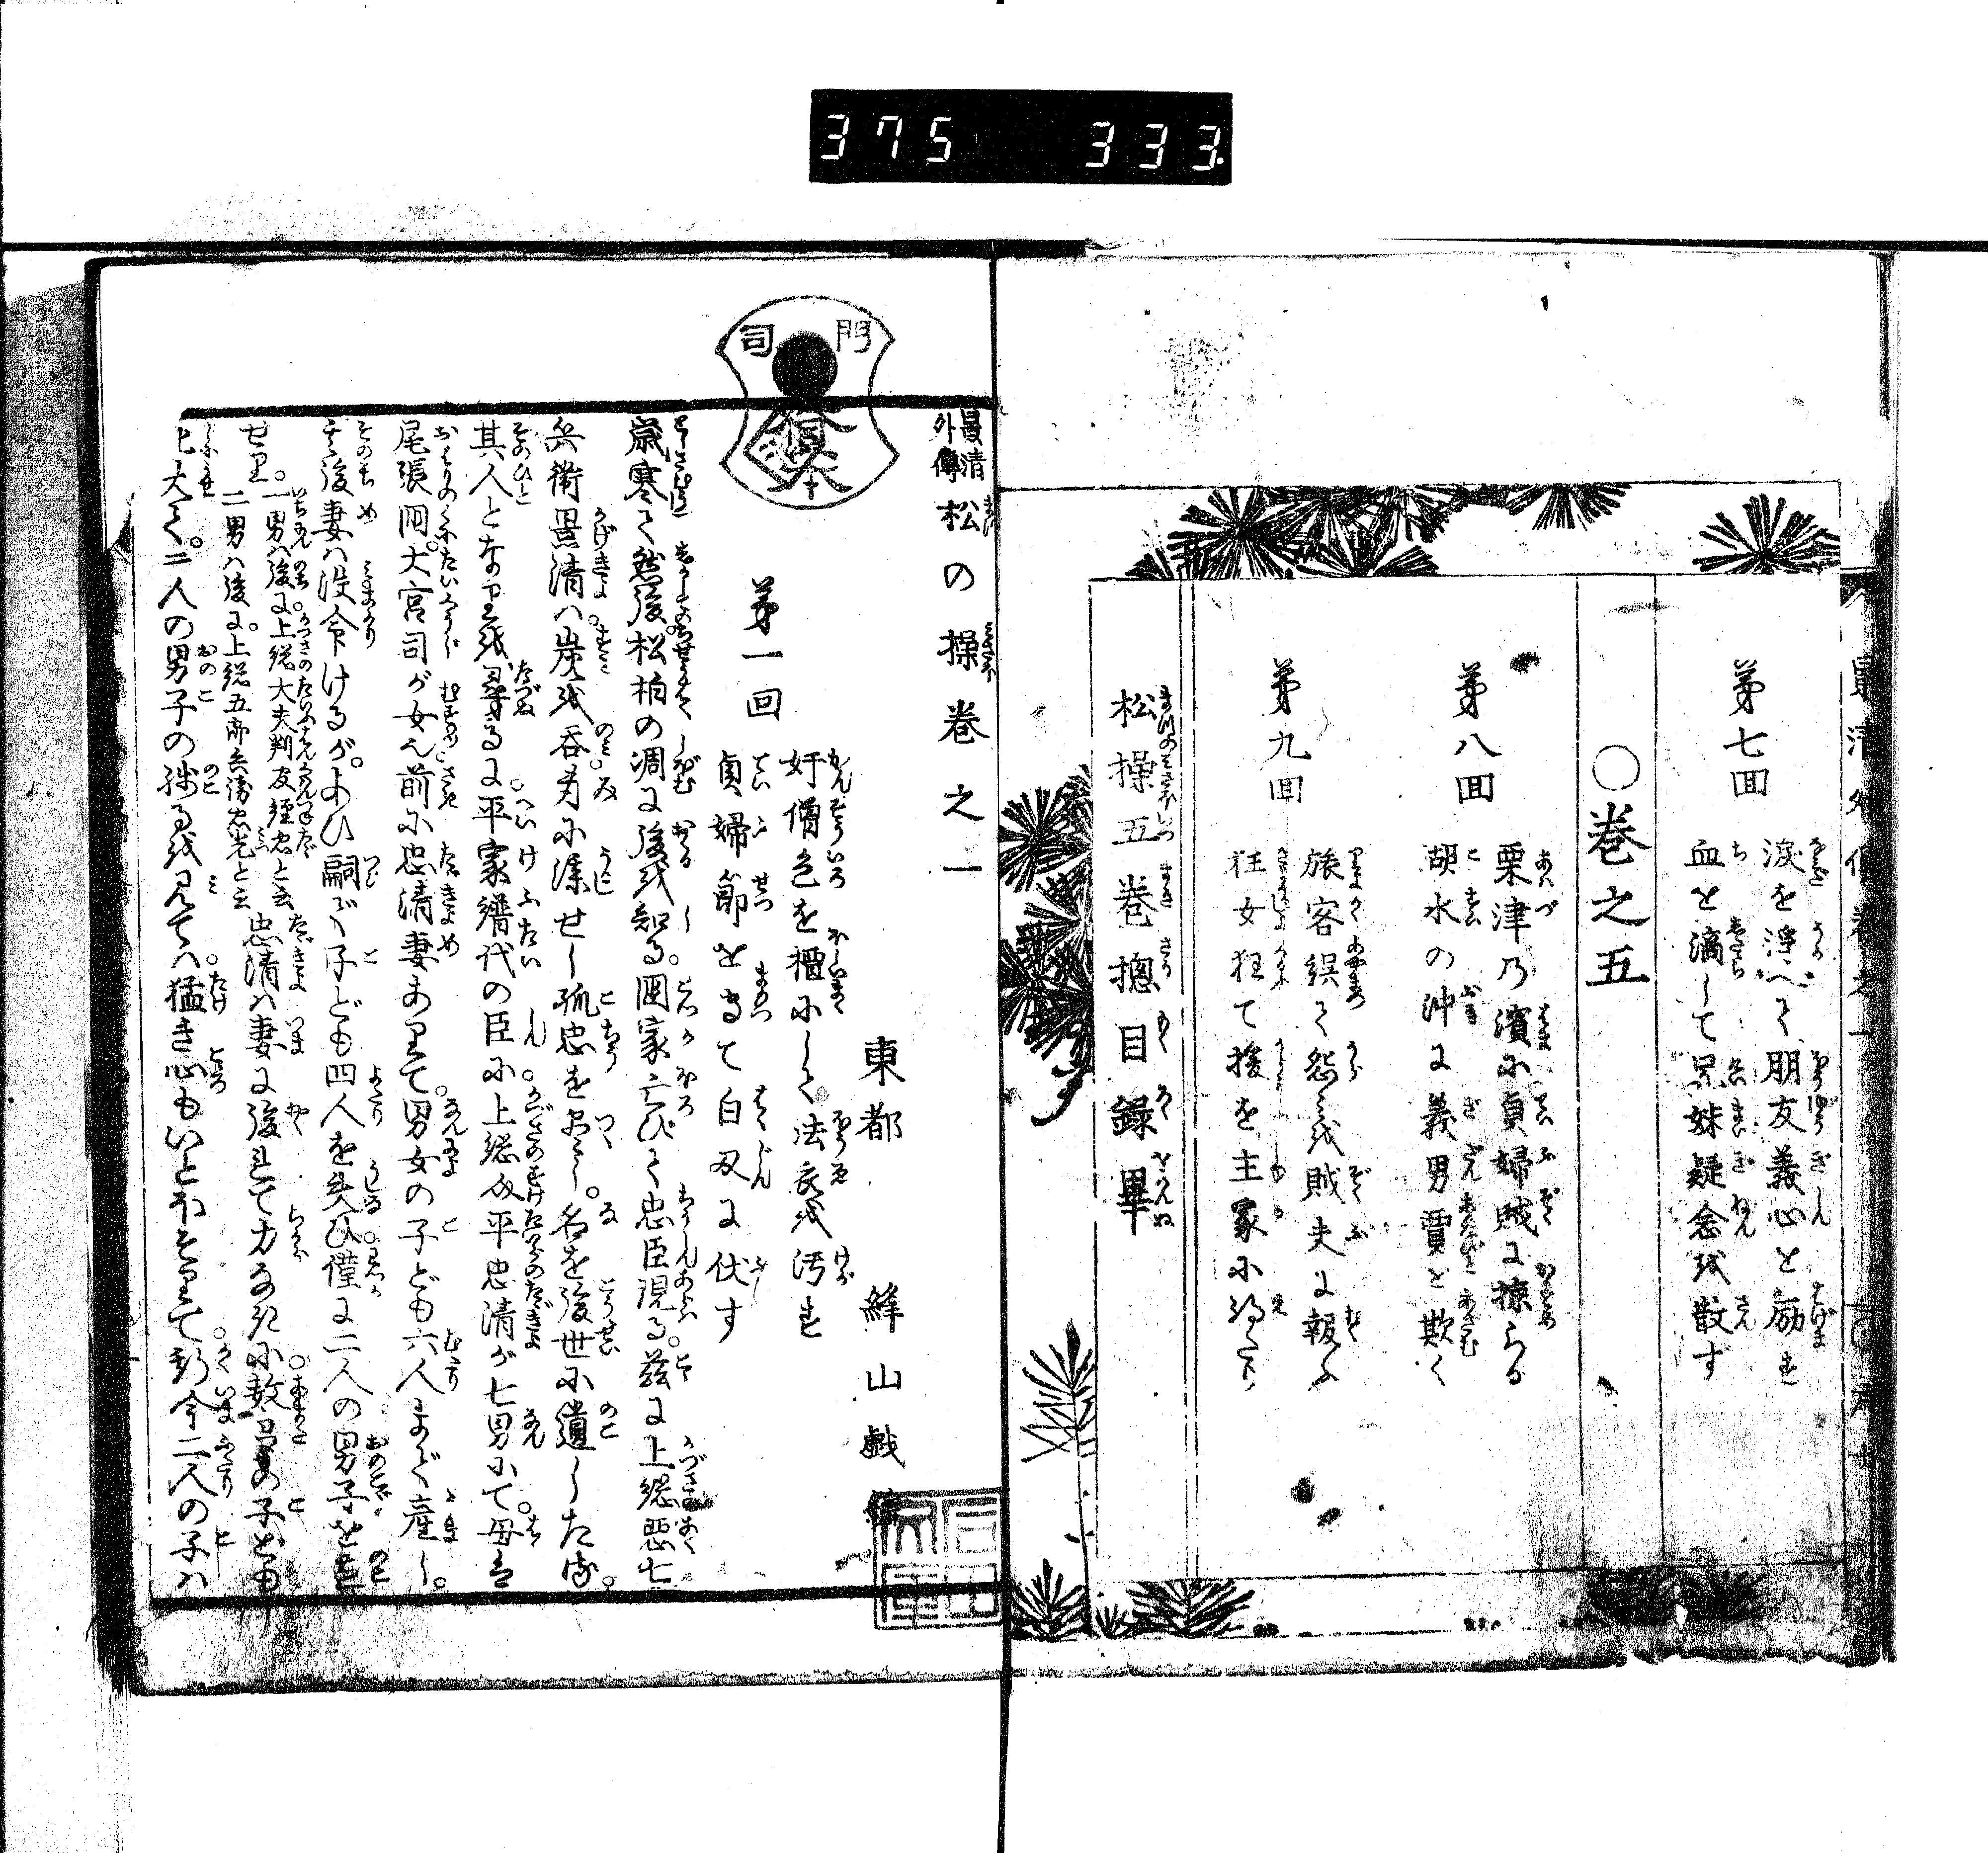 375 333
第七回
涙を浮べて朋友義心を励ます
血を滴して兄妹疑念を散す
〇巻之五
第八回
粟津乃濱に貞婦賊に掠らる
胡水の沖に義男賈を欺く
第九回
旅客誤て怨を賊夫に報ふ
狂女狂て援を主家に得たり
松操五巻揔目録畢
景清外傳 松の操巻之一
東都 絳山戯編
第一回
奸僧色を檀にして法衣を汚す
貞婦節を守て白刃に伏す
歳寒て然後松柏の凋に後を知る。国家亡びて忠臣現る。茲に上総悪七
兵衛景清ハ。炭を呑身に漆せし孤忠を尽し。名を後世に遺したり。
其人となりを尋るに。平家譜代の臣に。上総介平忠清が七男にて。母は
尾張国。大宮司が女
前に忠清妻ありて。男女の子ども六人まで産し。
其後妻ハ没命けるが。
嗣で子ども四人を失ひ僅に二人の男子を
せり。一男ハ後に上総大夫判官
忠と云
二男ハ後に。上総五郎兵衛忠光と云
忠清ハ妻に後れて力なきに数
の子ども
大て。二人の男子の残るを見てハ。猛き心も
今二人の子ハ
門司